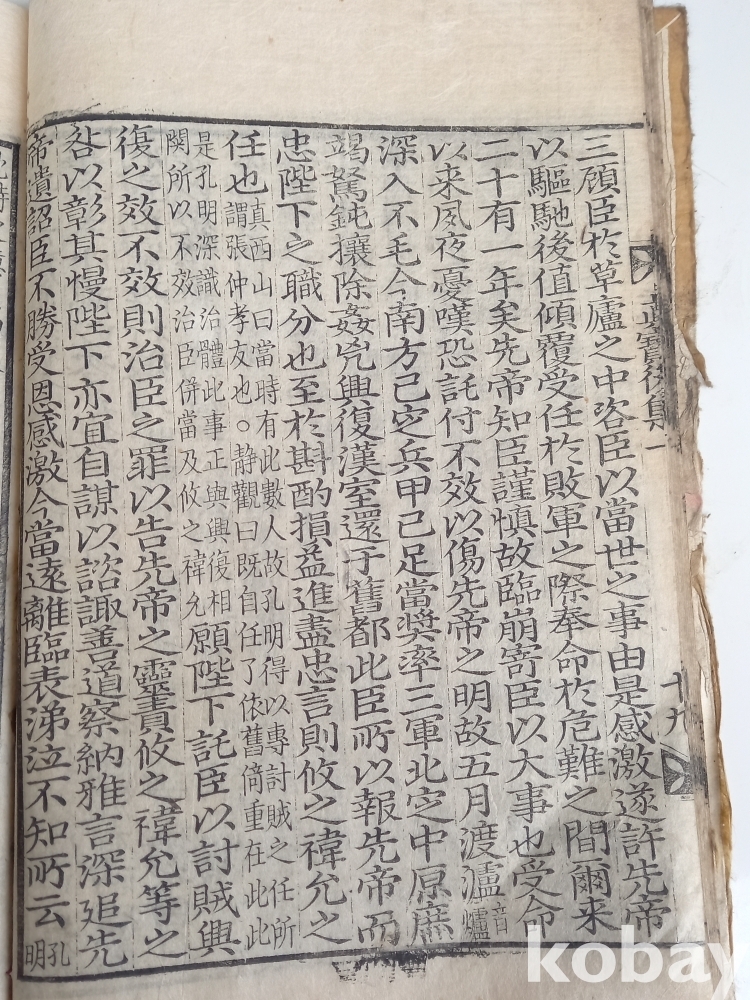 寶後集一
十九
三顧臣於草廬之中咨臣以當世之事由是感激遂許先帝
以驅馳後值傾覆受任於敗軍之際奉命於危難之間爾来
二十有一年矣先帝知臣謹慎故臨崩寄臣以大事也受命
以来夙夜憂嘆恐託付不效以傷先帝之明故五月渡瀘音爐
深入不毛今南方已定兵甲已足當奬率三軍北定中原庶
竭駑鈍攘除姦兇興復漢室還于舊都此臣所以報先帝而
忠陛下之職分也至於斟酌損益進盡忠言則攸之禕允之
任也真西山曰當時有此數人故孔明得以專討賊之任所
謂張仲孝友也○静觀曰既自任了依舊倚重在此此
是孔明深識治體此事正與興復相
関所以不效治臣併當及攸之禕允願陛下託臣以討賊興
復之效不效則治臣之罪以告先帝之靈責攸之禕允等之
咎以彰其慢陛下亦宜自謀以諮諏善道察納雅言深追先
帝遺詔臣不勝受恩感激今當遠離臨表涕泣不知所云孔明
kobay